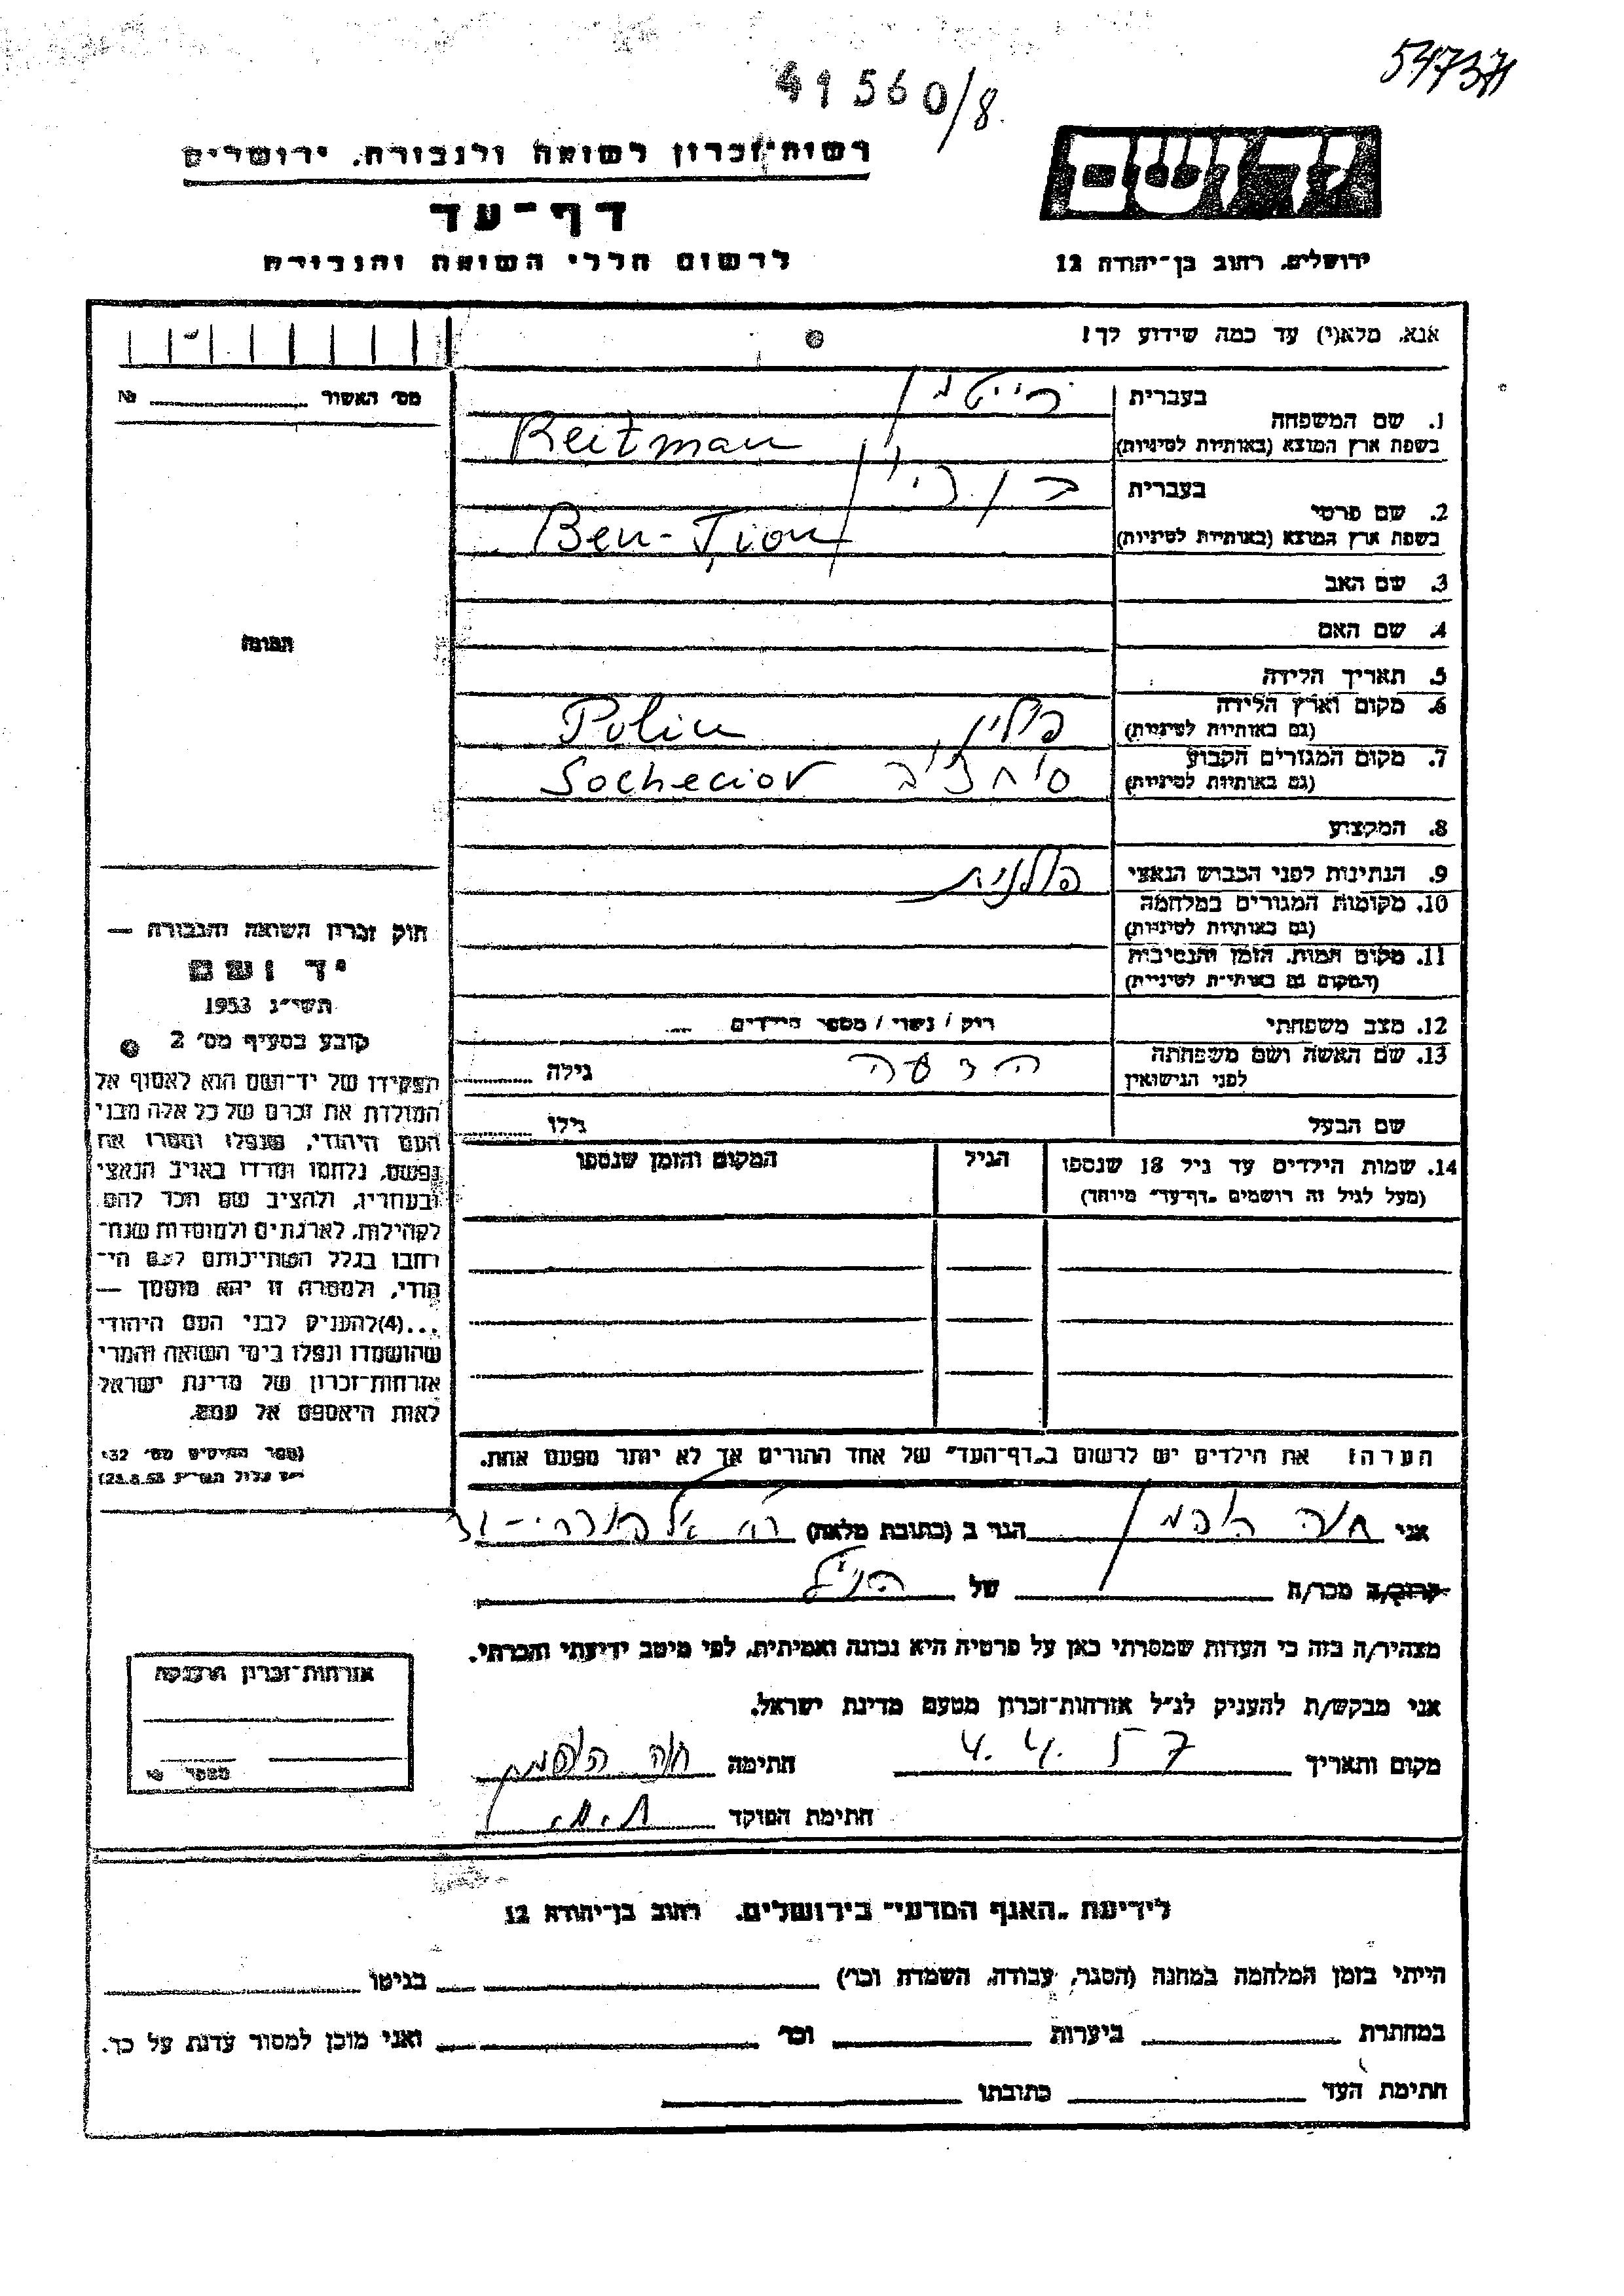 547371
41560/8.
רשות־זכרון לשואה ולגבורה, ירושלים
יד ושם
דף־עד
לרשום חללי השואה והגבורה
ירושלים, רחוב בן־יהודה 12
אנא, מלא(י) עד כמה שידוע לך!
מס' האשור № 
בעברית רייטמן
1. שם המשפחה
בשפת ארץ המוצא (באותיות לטיניות) Reitman
בעברית בן ציון
2. שם פרטי
בשפת ארץ המוצא (באותיות לטיניות) Ben-Țion
3. שם האב
4. שם האם
התמונה
5. תאריך הלידה
6. מקום וארץ הלידה
(גם באותיות לטיניות) פולין Polin
7. מקום המגורים הקבוע
(גם באותיות לטיניות) Sochecior
8. המקצוע
9. הנתינות לפני הכבוש הנאצי פולנית
10. מקומות המגורים במלחמה
(גם באותיות לטיניות)
11. מקום המות, הזמן והנסיבות
(המקום גם באותיות לטיניות)
12. מצב משפחתי רווק / נשוי / מספר הילדים
13. שם האשה ושם משפחתה
לפני הנישואין גילה
שם הבעל גילו
14. שמות הילדים עד גיל 18 שנספו
(מעל לגיל זה רושמים „דף־עד" מיוחד)
הגיל
המקום והזמן שנספו
חוק זכרון השואה והגבורה —
יד ושם
תשי"ג 1953
קובע בסעיף מס' 2
תפקידו של יד־ושם הוא לאסוף אל
המולדת את זכרם של כל אלה מבני
העם היהודי, שנפלו ומסרו את
נפשם, נלחמו ומרדו באויב הנאצי
ובעוזריו, ולהציב שם וזכר להם
לקהילות, לארגונים ולמוסדות שנח־
רבו בגלל השתייכותם לעם הי־
הודי, ולמטרה זו יהא מוסמך —
...(4) להעניק לבני העם היהודי
שהושמדו ונפלו בימי השואה והמרי
אזרחות־זכרון של מדינת ישראל
לאות היאספם אל עמם.
(ספר החוקים מס' 132
י"ז אלול תשי"ג 28.8.53)
הערה: את הילדים יש לרשום ב„דף־העד" של אחד ההורים אך לא יותר מפעם אחת.
אני חוה הופמן הגר ב (כתובת מלאה)
קרוב/ה מכר/ה של הנ"ל
מצהיר/ה בזה כי העדות שמסרתי כאן על פרטיה היא נכונה ואמיתית, לפי מיטב ידיעתי והכרתי.
אני מבקש/ת להעניק לנ"ל אזרחות־זכרון מטעם מדינת ישראל.
מקום ותאריך 4.4.57 חתימה חוה הופמן
חתימת הפוקד
אזרחות־זכרון הוענקה
מספר
לידיעת „האגף המדעי" בירושלים, רחוב בן־יהודה 12
הייתי בזמן המלחמה במחנה (הסגר, עבודה, השמדה וכו') בגיטו
במחתרת ביערות וכו' ואני מוכן למסור עדות על כך.
חתימת העד כתובתו